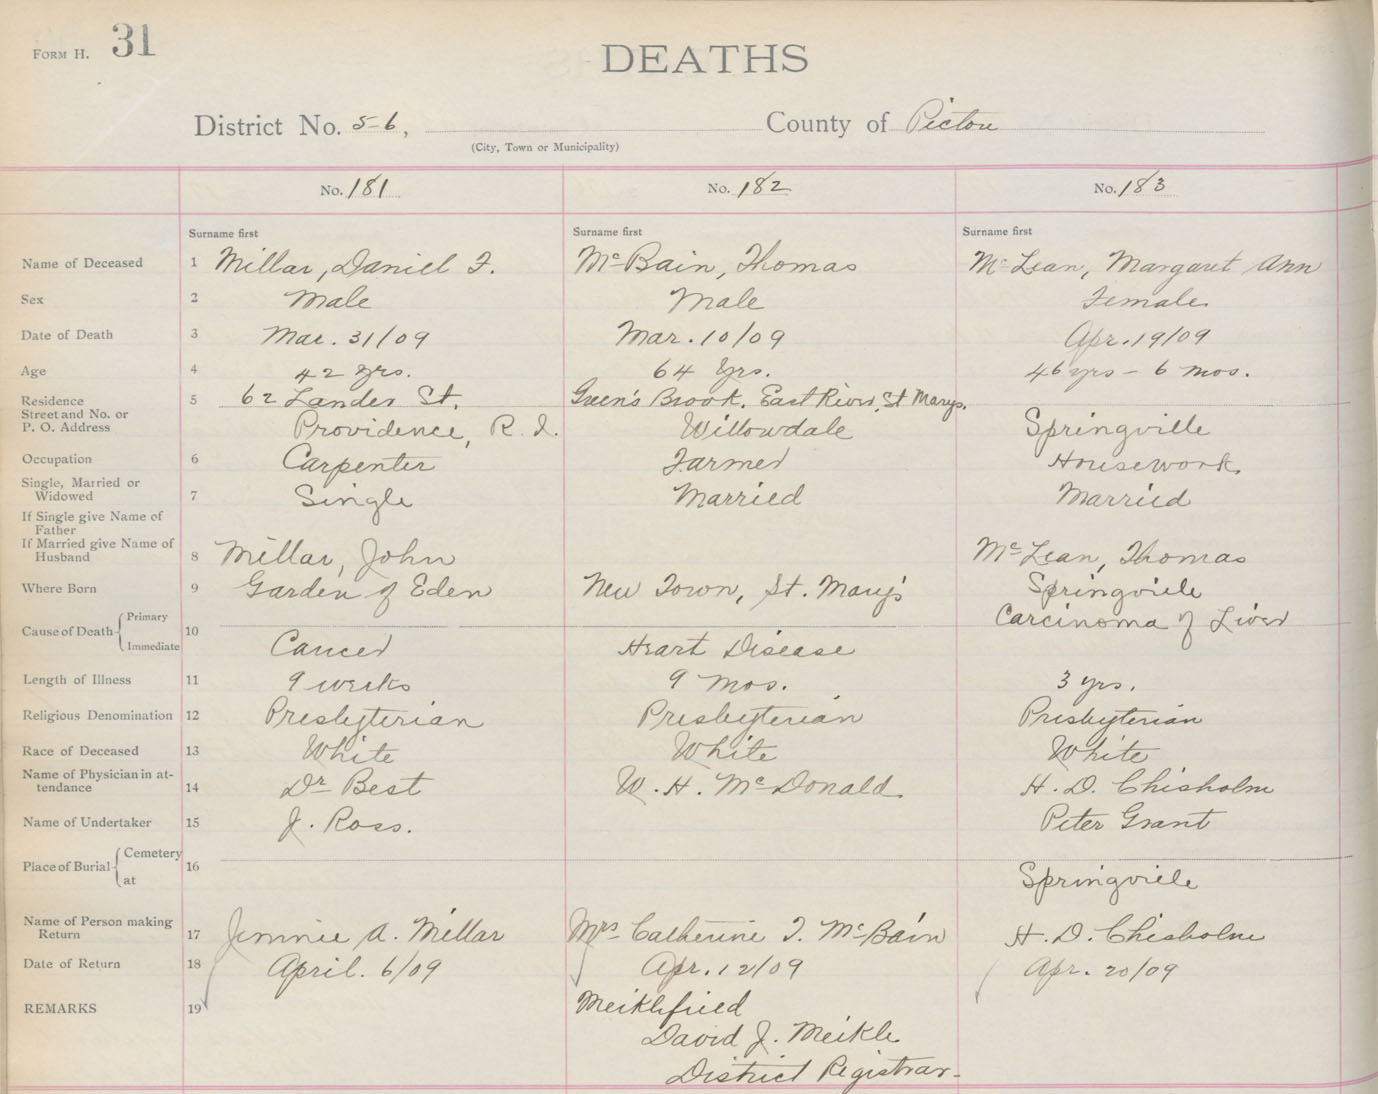 FORM H. 31
DEATHS
District No. 5-6, County of Pictou
(City, Town or Municipality)
No. 181 No. 182 No. 183
Surname first Surname first Surname first
Name of Deceased 1 Millar, Daniel F. McBain, Thomas McLean, Margaret Ann
Sex 2 Male Male Female
Date of Death 3 Mar. 31/09 Mar. 10/09 Apr. 19/09
Age 4 42 yrs. 64 yrs. 46 yrs - 6 mos.
Residence 5 62 Lander St. Green's Brook, East River, St Marys.
Street and No. or
P. O. Address Providence, R. I. Willowdale Springville
Occupation 6 Carpenter Farmer Housework
Single, Married or
Widowed 7 Single Married Married
If Single give Name of
Father
If Married give Name of
Husband 8 Millar, John McLean, Thomas
Where Born 9 Garden of Eden New Town, St. Mary's Springville
Cause of Death Primary 10 Carcinoma of Liver
Immediate Cancer Heart Disease
Length of Illness 11 9 weeks 9 mos. 3 yrs.
Religious Denomination 12 Presbyterian Presbyterian Presbyterian
Race of Deceased 13 White White White
Name of Physician in at-
tendance 14 Dr Best W. H. McDonald H. D. Chisholm
Name of Undertaker 15 J. Ross. Peter Grant
Place of Burial Cemetery 16
at Springville
Name of Person making
Return 17 Jennie A. Millar Mrs Catherine T. McBain H. D. Chisholm
Date of Return 18 April. 6/09 Apr. 12/09 Apr. 20/09
REMARKS 19 Meiklefield
David J. Meikle
District Registrar-